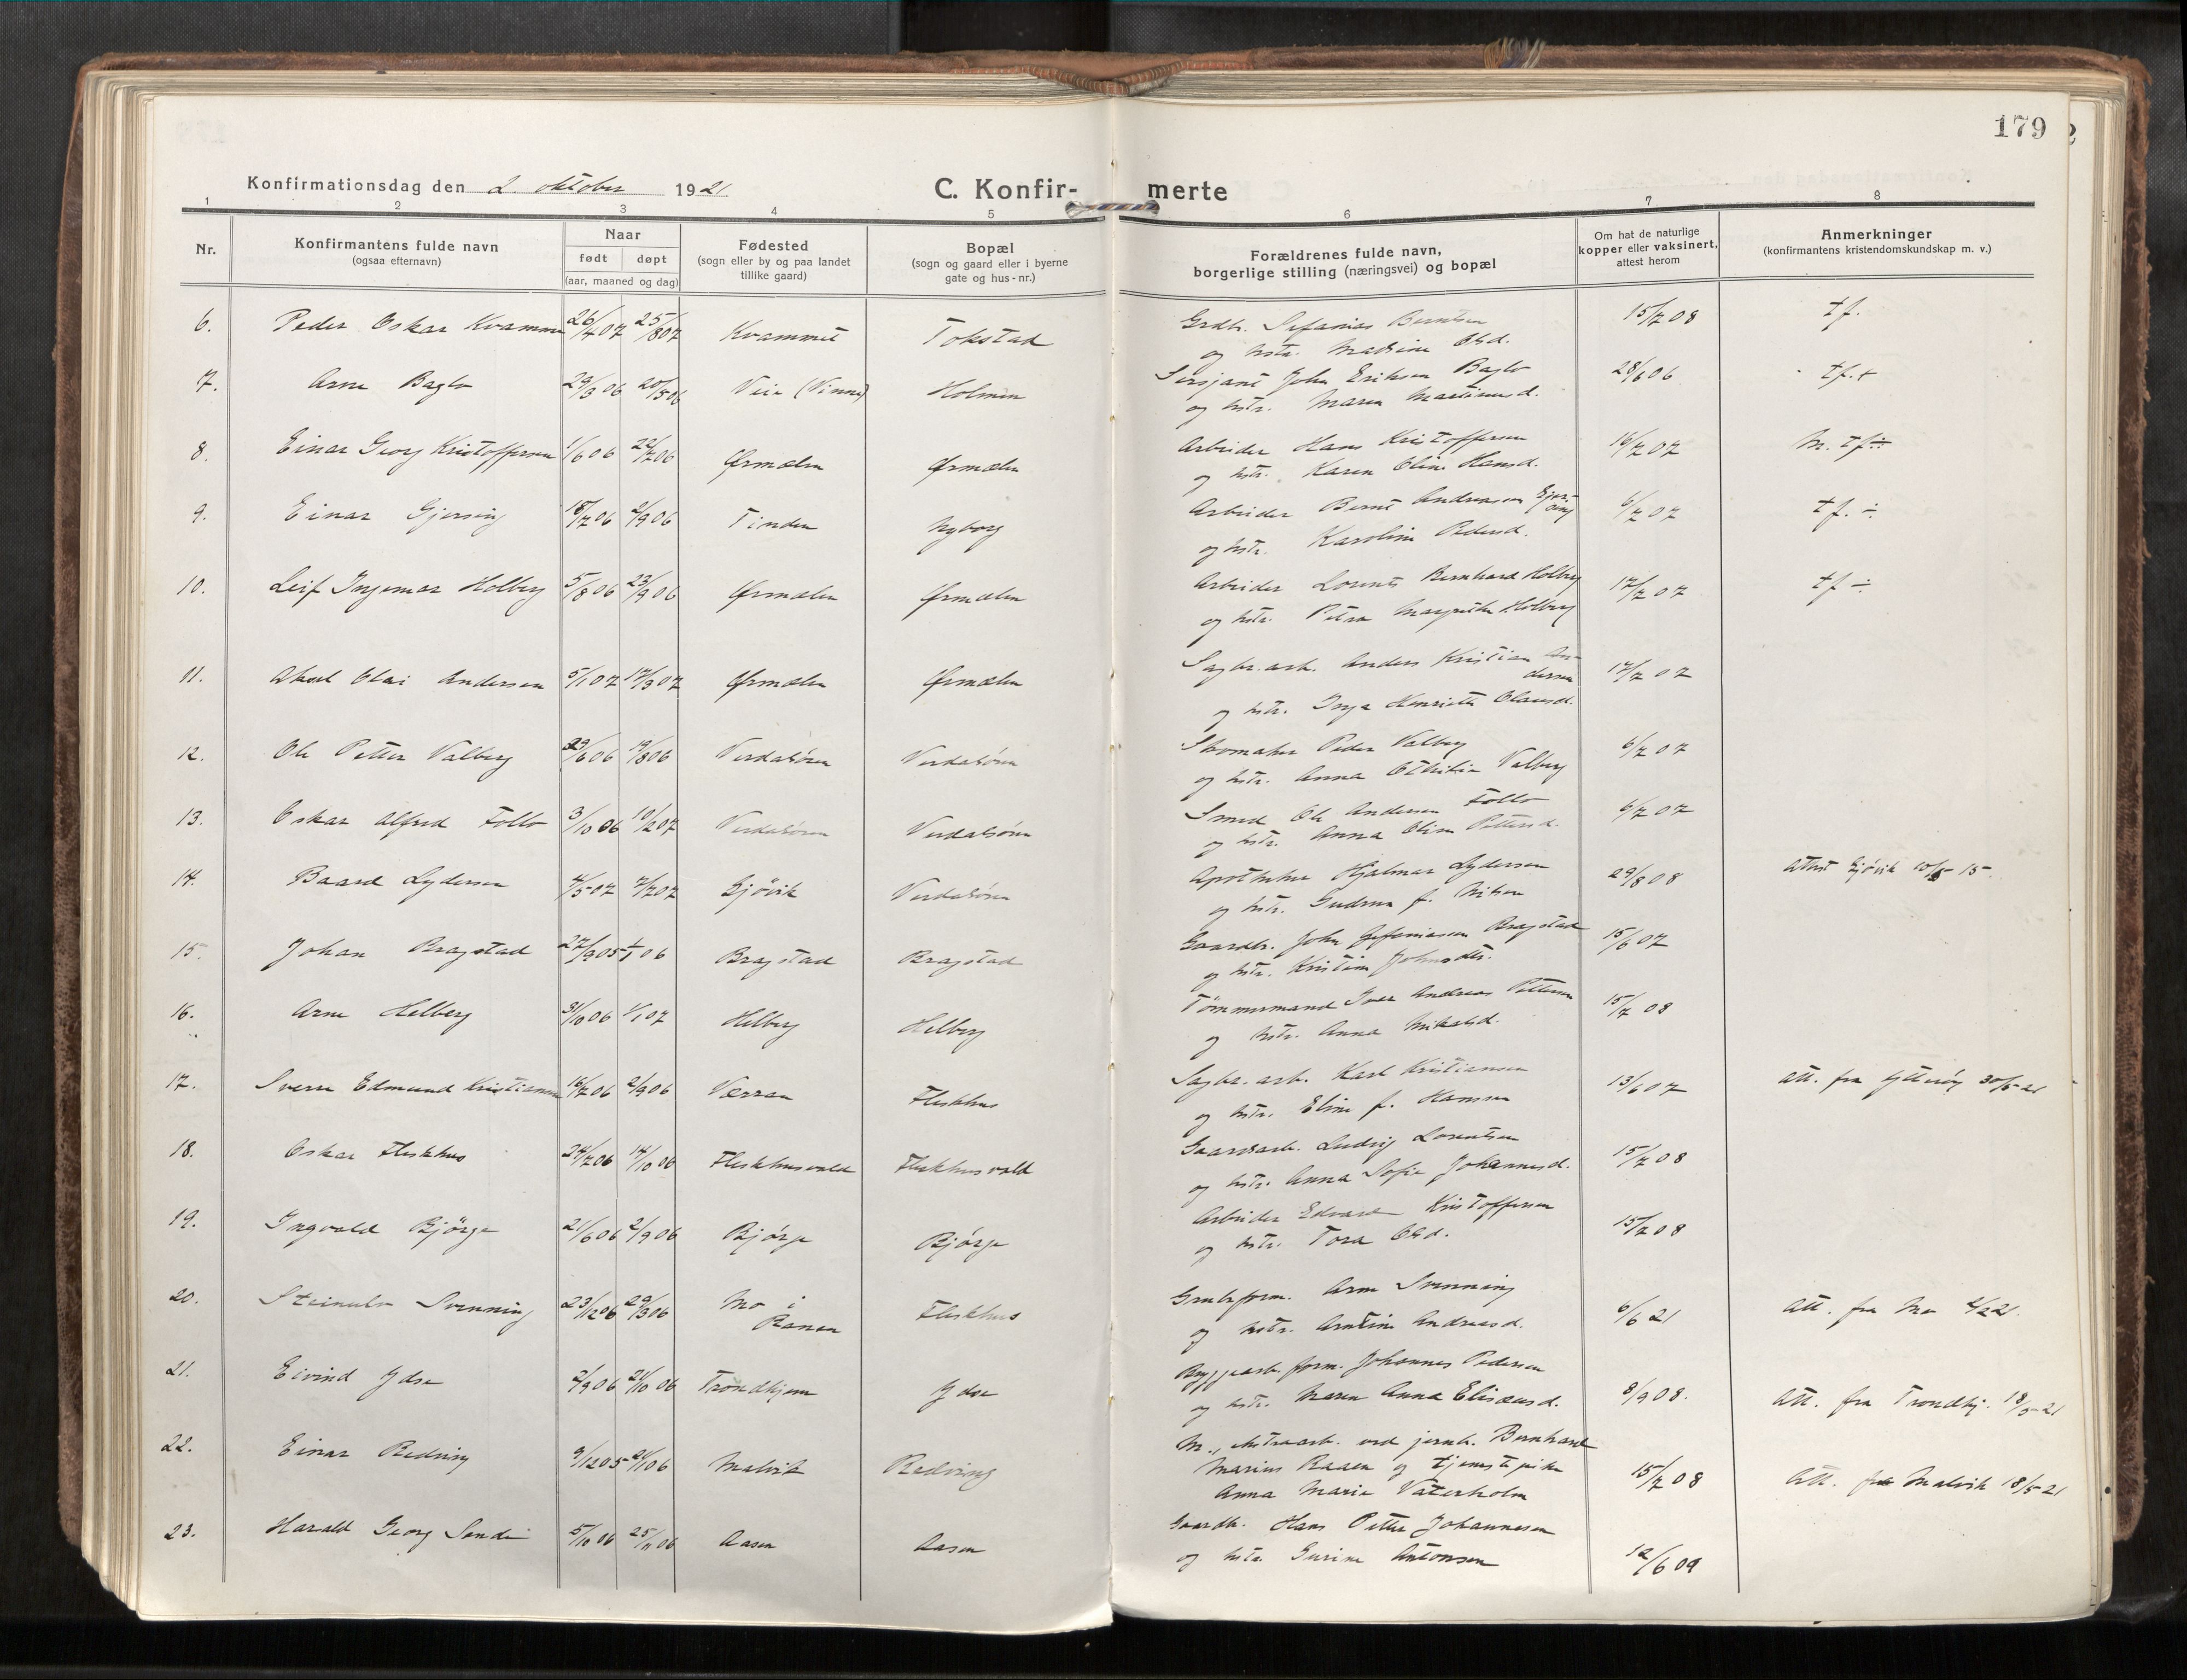 179
Konfirmationsdag den 2. oktober 1921
C. Konfir-
merte
1 2 3 4 5 6 7 8
Nr.
Konfirmantens fulde navn
(ogsaa efternavn)
Naar
født døpt
(aar, maaned og dag)
Fødested
(sogn eller by og paa landet
tillike gaard)
Bopæl
(sogn og gaard eller i byerne
gate og hus-nr.)
Forældrenes fulde navn,
borgerlige stilling (næringsvei) og bopæl
Om hat de naturlige
kopper eller vaksinert,
attest herom
Anmerkninger
(konfirmantens kristendomskundskap m. v.)
6. Peder Oskar Kvammen 26/4 07 25/8 07 Kvammet Tokstad
Grdbr. Sefanias Berntsen 15/7 08 tf.
og hstr. Olsd.
7. Arne Baglo 29/3 06 20/5 06 (Vinne) Holmen
Sersjant John Eriksen Baglo 28/6 06 tf.+
og hstr. Maren Martinusd.
8. Einar Georg Kristoffersen 1/6 06 22/7 06 Ørmælen Ørmælen
Arbeider Hans Kristoffersen 16/7 07 M. tf÷
og hstr. Karen Oline Hansd.
9. Einar Gjersing 18/7 06 2/9 06 Tinden Nyborg
Arbeider Bernt Andreasen Gjer-
sing 6/7 07 tf. ÷
og hstr. Karoline Pedersd.
10. Leif Ingemar Holberg 5/8 06 23/9 06 Ørmælen Ørmælen
Arbeider Lorents Bernhard Holberg 17/7 07 tf ÷
og hstr. Petra Margrethe Holberg
11. Aksel Olai Andersen 5/1 07 17/3 07 Ørmælen Ørmælen
Sagbr. arb. Anders Kristian An-
dersen 17/7 07
og hstr. Inga Henriette Olausd.
12. Ole Petter Valberg 29/6 06 19/8 06 Verdalsøren Verdalsøren
Skomaker Peder Valberg 6/7 07
og hstr. Anna Valberg
13. Oskar Alfred Follo 3/10 06 10/2 07 Verdalsøren Verdalsøren
Smed Ole Andersen Follo 6/7 07
og hstr. Anna Oline Pettersd.
14. Baard Lydersen 4/5 07 7/7 07 Gjövik Verdalsøren
Apotheker Hjalmar Lydersen 29/8 08 Attest Gjövik 10/5 15.
og hstr. Gudrun f. Nilsen
15. Johan Bragstad 27/9 05 1/1 06 Bragstad Bragstad
Gaardbr. John Zefaniasen Bragstad 15/6 07
og hstr. Kristine Johnsdtr.
16. Arne Helberg 31/10 06 1/1 07 Helberg Helberg
Tømmermand Iver Andreas Pettersen 15/7 08
og hstr. Anna Mikalsd.
17. Sverre Edmund Kristiansen 16/7 06 2/9 06 Værran Fleskhus
Sagbr. arb. Karl Kristiansen 13/6 07 att. fra Ytterøy 30/5-21
og hstr. Eline f. Hansen
18. Oskar Fleskhus 24/7 06 14/10 06 Fleskhusvald Fleskhusvald
Gaardsarb. Ludvig Lorentsen 15/7 08
og hstr. Anna Sofie Johannesd.
19. Ingvald Bjørge 21/6 06 2/9 06 Bjørge Bjørge
Arbeider Edvard Kristoffersen 15/7 08
og hstr. Tora Olsd.
20. Steinulv Svenning 23/12 06 Mo i
Ranen Fleskhus
Grubeform. Arne Svenning 6/6 21 att. fra Mo 21.
og hstr. Arntine Andreasd.
21. Eivind Ydse 2/9 06 21/10 06 Trondhjem Ydse
Byggearb. form. Johannes Pedersen 8/9 08. att. fra Trondhj. 18/5-21
og hstr. Maren Anna Elisæusd.
22. Einar Redving 9/12 05 21/1 06 Malvik Redving
M., ekstraarb. ved jernb. Bernhard
Marius Raaen og tjenestepike 15/7 08 Att. fra Malvik 18/5-21
Anna Marie Vaterholm
23. Harald Georg Sende 5/10 06 25/11 06 Aasen Aasen
Gaardb. Hans Petter Johannesen 12/6 09
og hstr. Gurine Antonsen